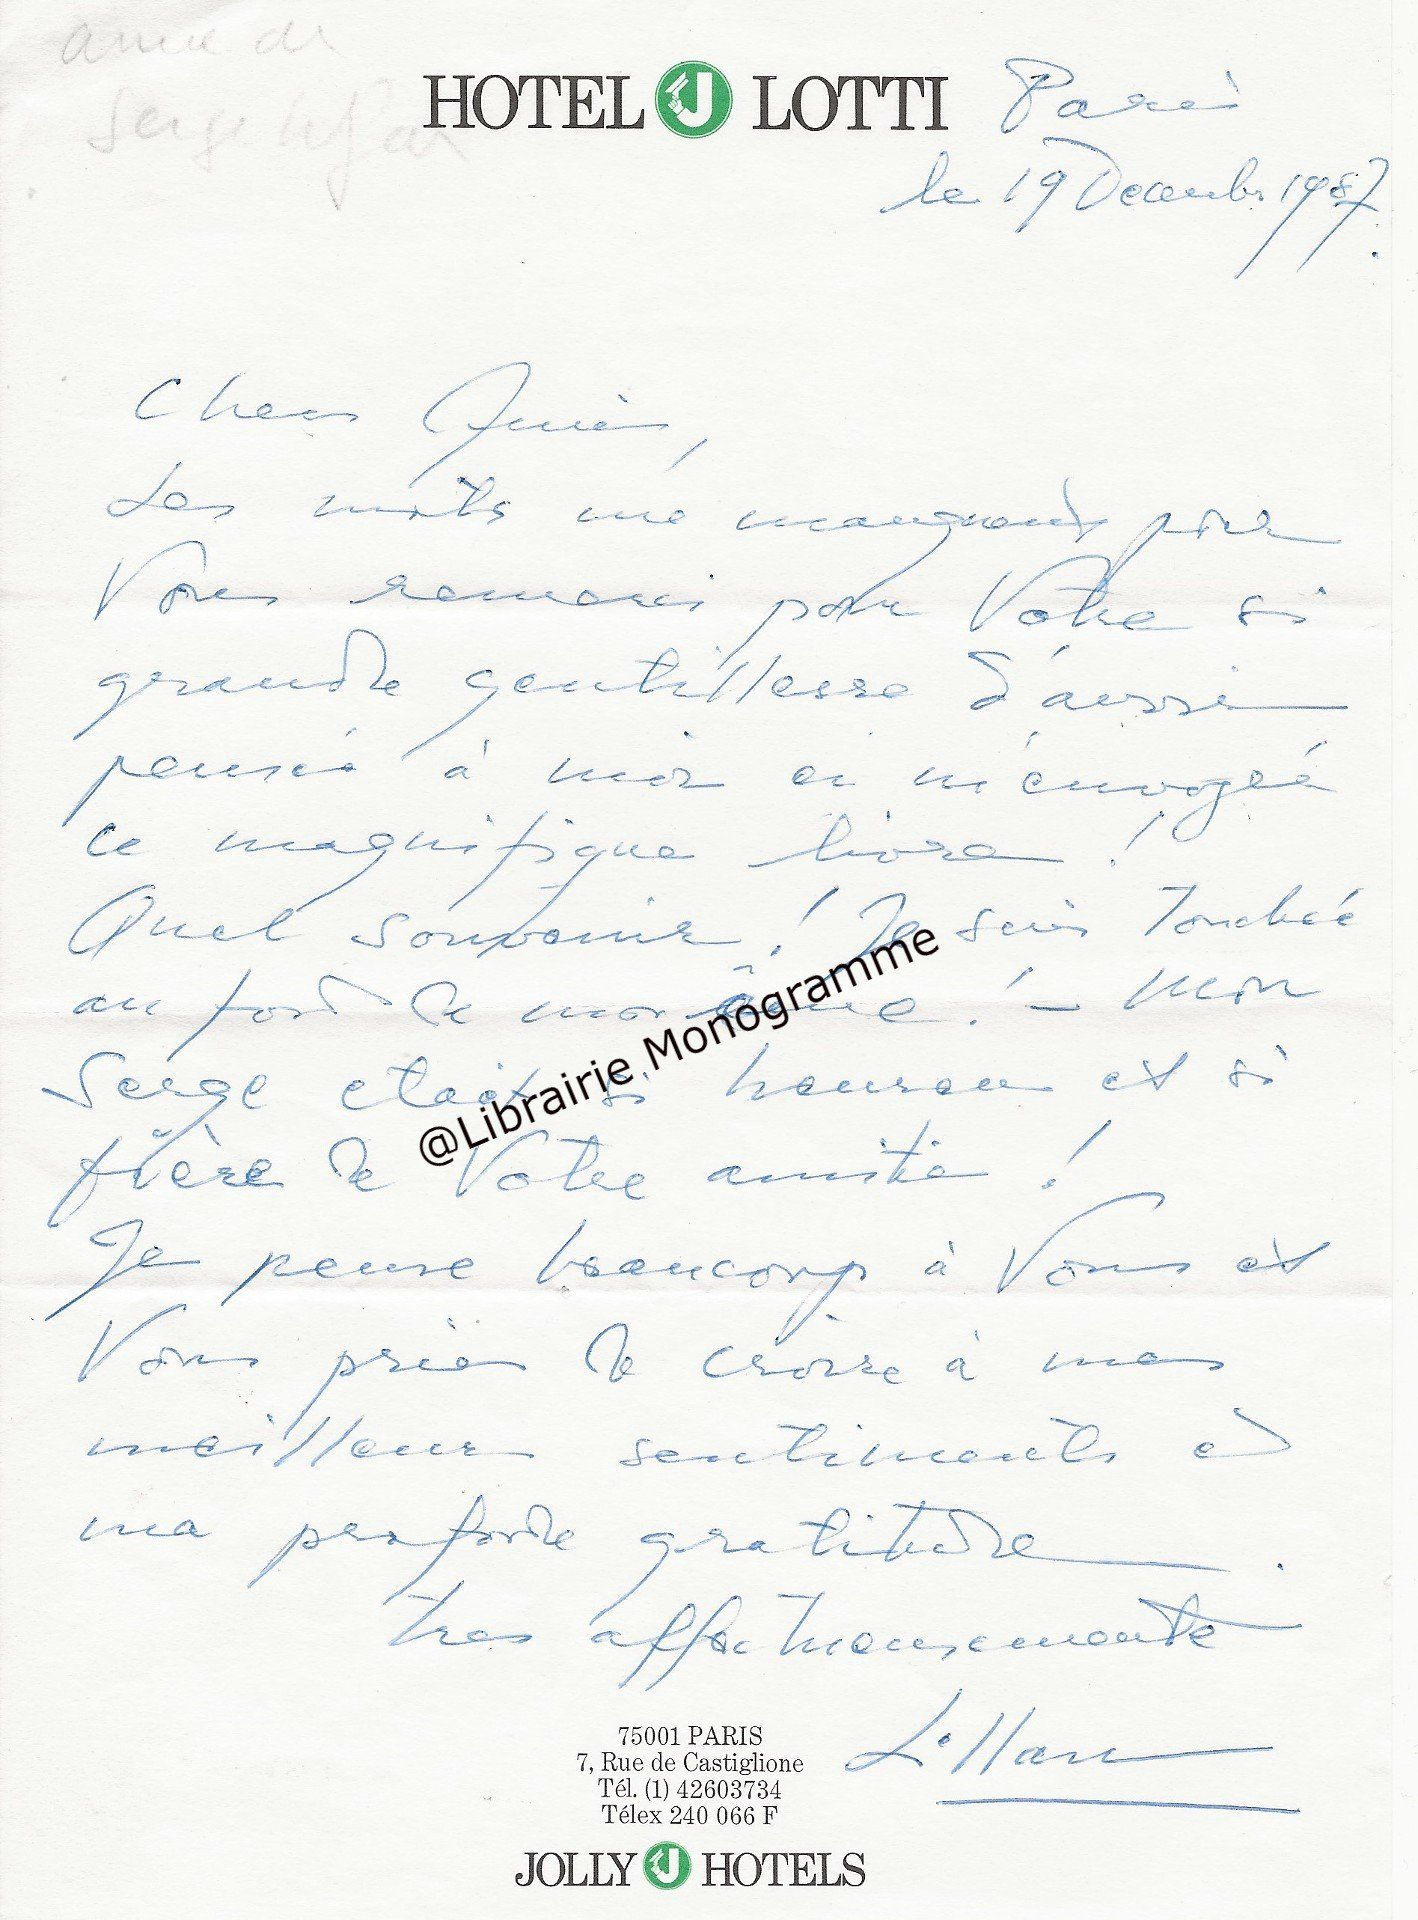 amie de
Serge Lifar
HOTEL J LOTTI
Paris
le 19 Decembre 1987.
Chers Amis,
Les mots me manquent pour
Vous remerci pour Votre si
grande gentillesse d'avoir
pensé à moi en m'envoyée
ce magnifique livre !
Quel souvenir ! Je suis Touchée
au fond de mon âme ! - Mon
Serge etait si heureux et si
fière de Votre amitié !
Je pense beaucoup à Vous et
Vous pries de croire à mes
meilleurs sentiments et
ma profonde gratitude.
tres affectueusement
Lillan
@Librairie Monogramme
75001 PARIS
7, Rue de Castiglione
Tél. (1) 42603734
Télex 240 066 F
JOLLY J HOTELS